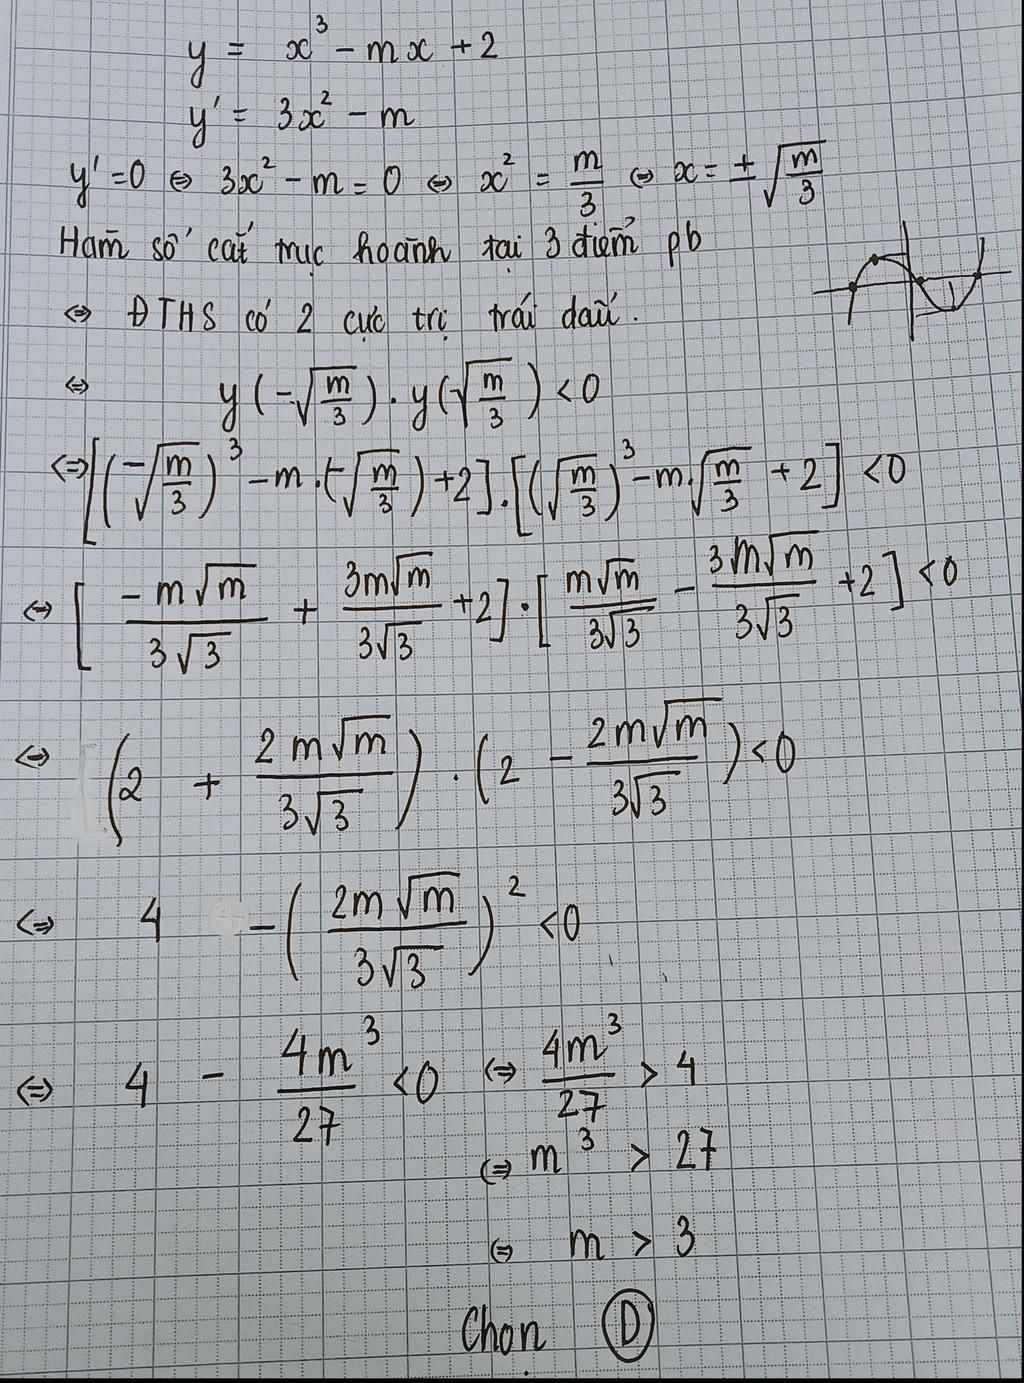 y = x³ - mx + 2
y' = 3x² - m
y' = 0 ⇔ 3x² - m = 0 ⇔ x² = m/3 ⇔ x = ±√(m/3)
Hàm số cắt trục hoành tại 3 điểm pb
⇔ ĐTHS có 2 cực trị trái dấu.
⇔ y(-√(m/3)) . y(√(m/3)) < 0
⇔ [(-√(m/3))³ - m.(-√(m/3)) + 2] . [(√(m/3))³ - m.√(m/3) + 2] < 0
⇔ [-m√m/(3√3) + 3m√m/(3√3) + 2] . [m√m/(3√3) - 3m√m/(3√3) + 2] < 0
⇔ (2 + 2m√m/(3√3)) . (2 - 2m√m/(3√3)) < 0
⇔ 4 - (2m√m/(3√3))² < 0
⇔ 4 - 4m³/27 < 0 ⇔ 4m³/27 > 4
⇔ m³ > 27
⇔ m > 3
Chọn D